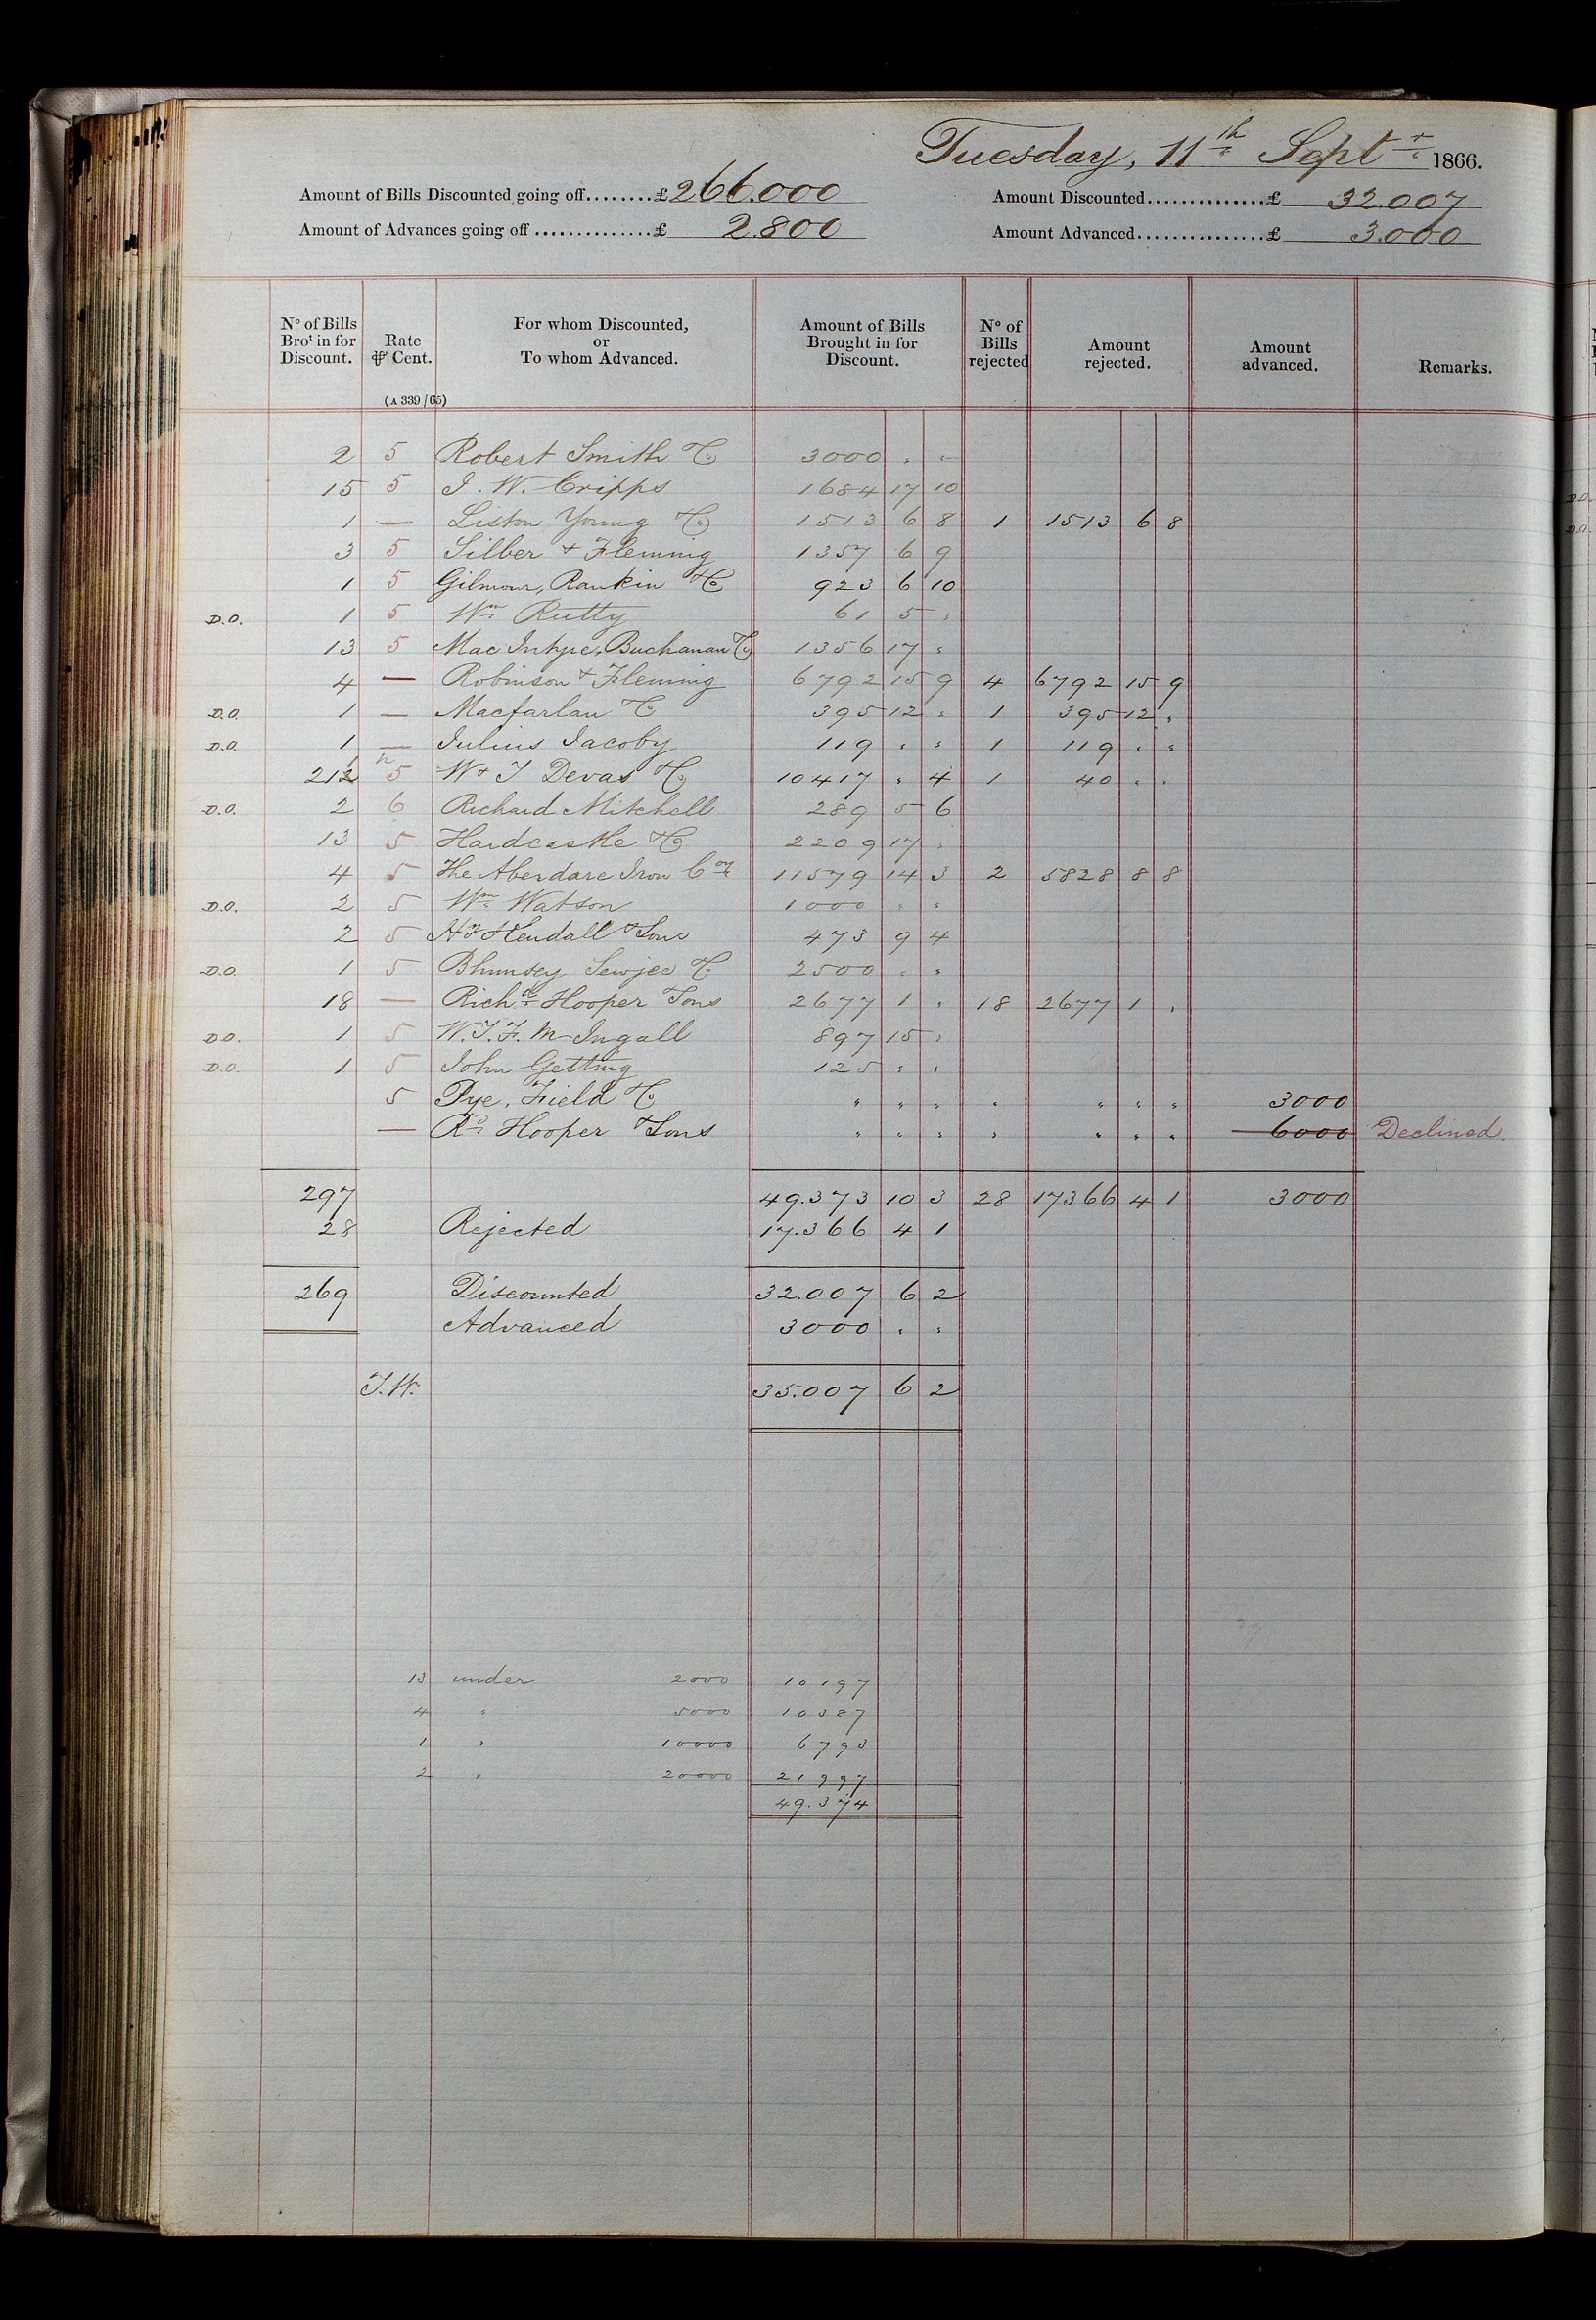 Tuesday, 11th Septr 1866.
Amount of Bills Discounted going off........£ 266.000 Amount Discounted..............£ 32.007
Amount of Advances going off..............£ 2.800 Amount Advanced...............£ 3.000
No of Bills Brot in for Discount. Rate ⅌ Cent. For whom Discounted, or To whom Advanced. Amount of Bills Brought in for Discount. No of Bills rejected Amount rejected. Amount advanced. Remarks.
(A 339/65)
2 5 Robert Smith & Co 3000 " "
15 5 J. W. Cripps 1684 17 10
1 — Liston Young & Co 1513 6 8 1 1513 6 8
3 5 Silber & Fleming 1357 6 9
1 5 Gilmour, Rankin & Co 923 6 10
D.O. 1 5 Wm Rutty 61 5 "
13 5 Mac Intyre, Buchanan & Co 1356 17 "
4 — Robinson & Fleming 6792 15 9 4 6792 15 9
D.O. 1 — Macfarlan & Co 395 12 " 1 395 12 "
D.O. 1 — Julius Jacoby 119 " " 1 119 " "
212 5 W & T Devas & Co 10417 " 4 1 40 " "
D.O. 2 6 Richard Mitchell 289 5 6
13 5 Hardcastle & Co 2209 17 "
4 5 The Aberdare Iron Coy 11579 14 3 2 5828 8 8
D.O. 2 5 Wm Watson 1000 " "
2 5 Hy Kendall & Sons 473 9 4
D.O. 1 5 Bhimsey Sewjee & Co 2500 " "
18 — Richd Hooper & Sons 2677 1 " 18 2677 1 "
D.O. 1 5 W.T.F.M. Ingall 897 15 "
D.O. 1 5 John Getting 125 " "
5 Pye, Field & Co " " " " " " " 3000
— Rd Hooper & Sons " " " " " " " 6000 Declined.
297 49.373 10 3 28 17366 4 1 3000
28 Rejected 17.366 4 1
269 Discounted 32.007 6 2
Advanced 3000 " "
T.W. 35.007 6 2
13 under 2000 10197
4 " 5000 10387
1 " 10000 6793
2 " 20000 21997
49.374